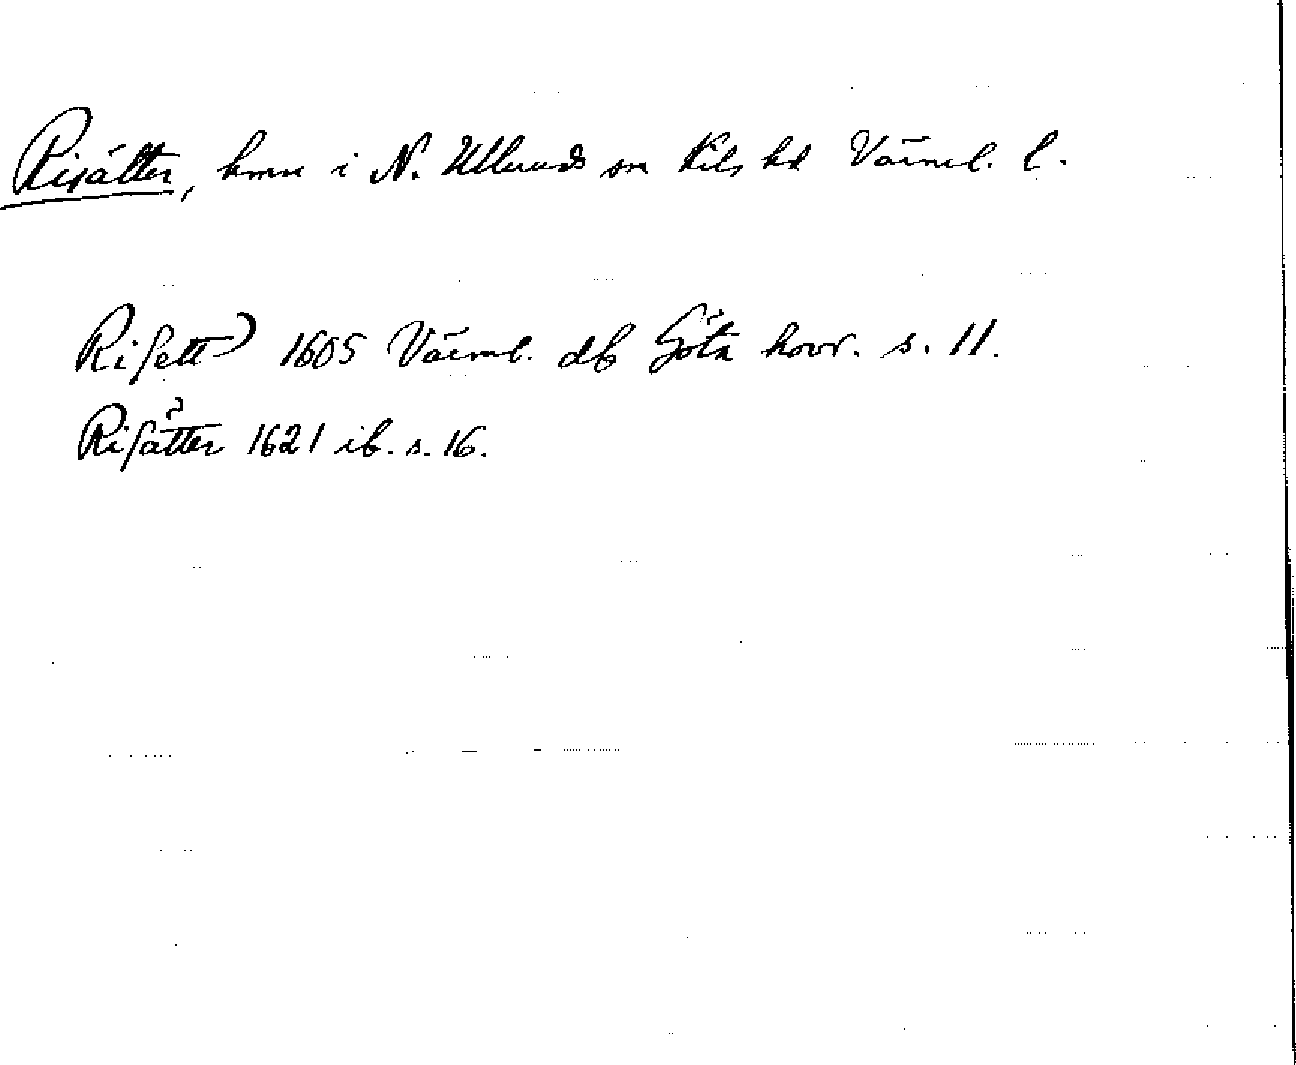 Risäter, hmn i N. Ulleruds sn Kils hd Värml. l.
Risett 1605 Värml. db Göta hovr. s. 11.
Risätter 1621 ib. s. 16.